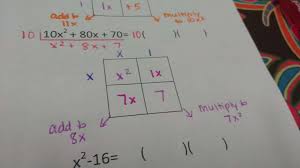 1x +5
add to
11x
multiply to
10 10x² + 80x + 70 = 10( )( )
x² + 8x + 7
x 1
x x² 1x
7x 7
add to
8x
multiply to
7x²
x²-16= ( )( )